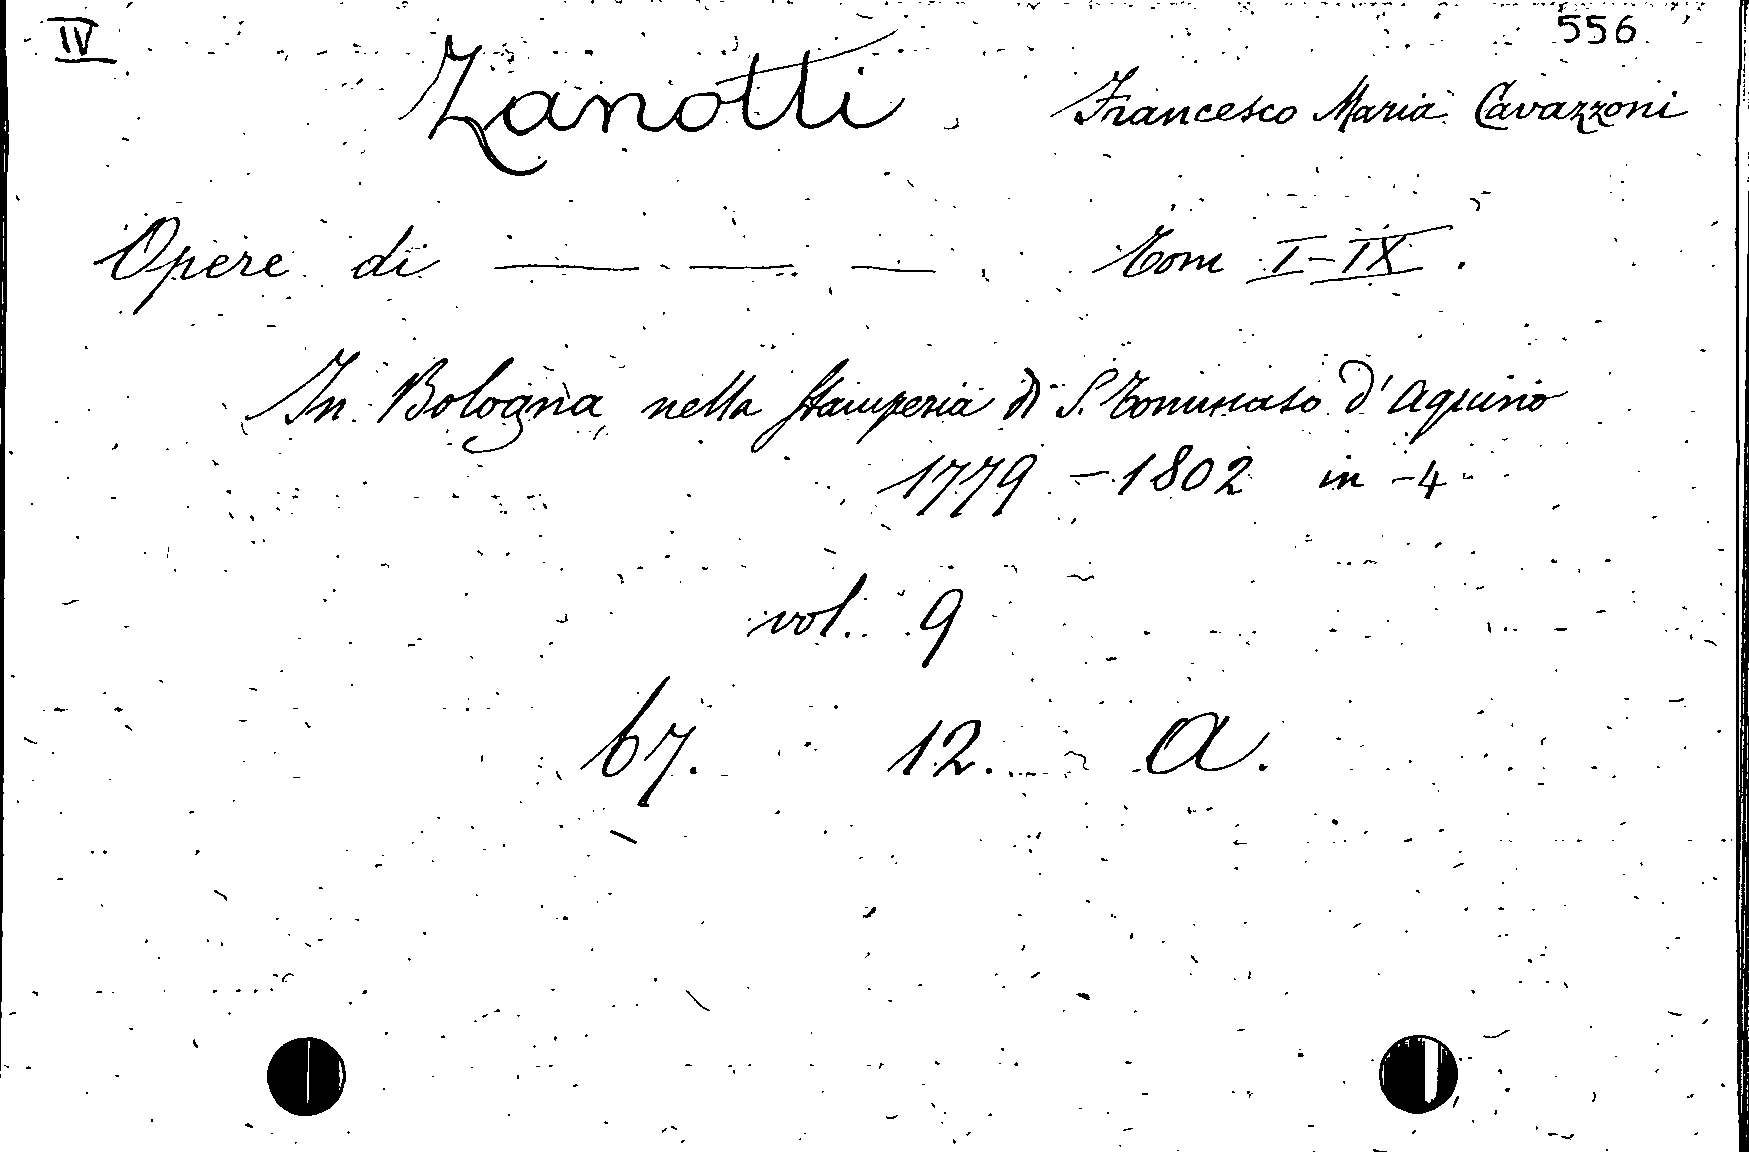 IV 556
Zanotti, Francesco Maria Cavazzoni
Opere di — — — Tom I-IX.
In Bologna, nella Stamperia di S. Tommaso d'Aquino
1779 - 1802 in -4-
vol. 9
67. 12. A.